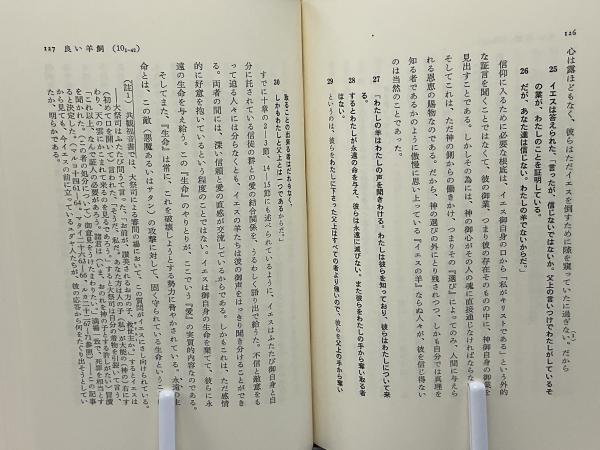 126
心は露ほどもなく、彼らはただイエスを倒すために隙を窺っていたに過ぎない。だから
25 イエスは答えられた「言ったが、信じないではないか。父上の言いつけでわたしがしているそ
の業が、わたしのことを証明している。
26 だが、あなた達は信じない。わたしの羊でないからだ。」
信仰に入るために必要な根底は、イエス御自身の口から「私がキリストである」という外的
な証言を聞くことではなくて、彼の御業、つまり彼の存在そのものの中に、神御自身の御業を
見出すことである。しかしその為には、神の御心がその人の魂に直接通じなければならない。
そしてこれは、ただ神の側からの働きかけ、つまりその『選び』によってのみ、人間に与えら
れる恩恵の賜物なのである。だから、神の選びの外にとり残されつつ、しかも自分では真理を
知る者であるかのように傲慢に思い上っている『イエスの羊』ならぬ人々が、彼を信じ得ない
のは当然のことであった。
27 「わたしの羊はわたしの声を聞きわける。わたしは彼らを知っており、彼らはわたしについて来
る。
28 するとわたしが永遠の命を与え、彼らは永遠に滅びない。また彼らをわたしの手から奪い取る者
はない。
29 というのは、彼らをわたしに下さった父上はすべての者より強いので、彼らを父上の手から奪い
127 良い羊飼 (10 1-42)
取ることの出来る者はだれもなく、
30 しかもわたしと父上とは一つであるからだ。」
すでに十章の2—3節、14—15節にも述べられているように、イエスはふたたび御自身と自
分に託されている信徒の群との愛の結合関係を、うるわしく語り出で給うた。不信と敵意をも
って迫る人々には分らなくとも、イエスの羊たちは彼の御声をはっきり聞き分けることができ
る。両者の間には、深い信頼と愛の直感が交流しているからである。しかもこれは、ただ感情
的に好意を抱いているという程度のことではない。イエスは御自身の生命を棄てて、彼らに永
遠の生命を与え給う。この『生命』のやりとりが、ここでいう『愛』の実質的内容なのである。
そしてまた、『生命』は常に、これを破壊しようとする勢力に脅やかされている。永遠の生
命とは、この敵（悪魔あるいはサタン）の攻撃に対して、固く守られている生命というこ
（註1） 共観福音書では、大祭司による審問の場において、この質問がイエスにさし向けられている。